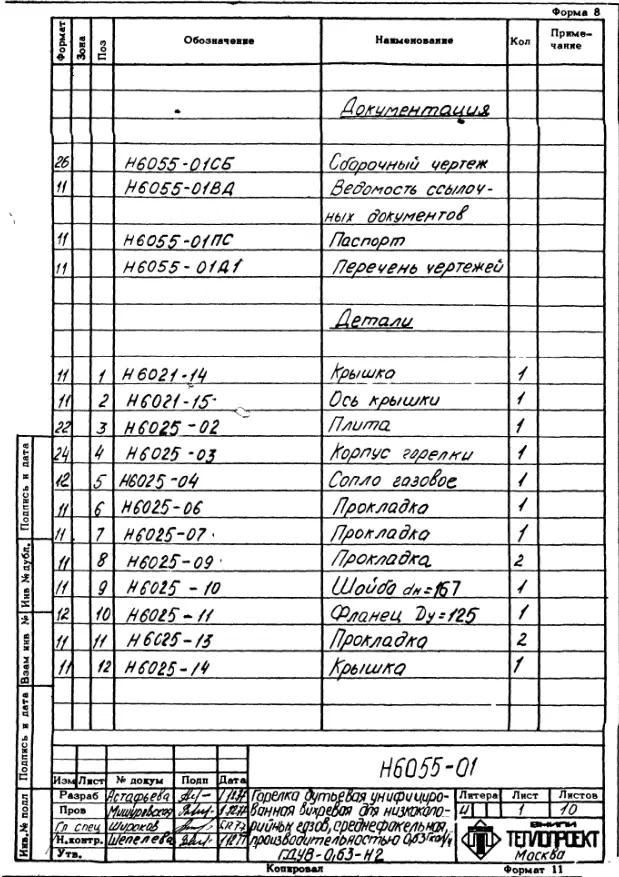 Форма 8
Формат Зона Поз Обозначение Наименование Кол Приме-
чание
Документация
26 Н6055-01СБ Сборочный чертеж
11 Н6055-01ВД Ведомость ссылоч-
ных документов
11 Н6055-01ПС Паспорт
11 Н6055-01Д1 Перечень чертежей
Детали
11 1 Н6021-14 Крышка 1
11 2 Н6021-15 Ось крышки 1
22 3 Н6025-02 Плита 1
24 4 Н6025-03 Корпус горелки 1
12 5 Н6025-04 Сопло газовое 1
11 6 Н6025-06 Прокладка 1
11 7 Н6025-07 Прокладка 1
11 8 Н6025-09 Прокладка 2
11 9 Н6025-10 Шайба dн=167 1
12 10 Н6025-11 Фланец Dу=125 1
11 11 Н6025-13 Прокладка 2
11 12 Н6025-14 Крышка 1
Подпись и дата
Инв № дубл.
Взам инв №
Подпись и дата
Инв.№ подл
Н6055-01
Изм Лист № докум Подп Дата
Разраб Астафьева
Пров
Гл спец Широков
Н.контр. Шепелева
Утв.
Горелка дутьевая унифициро-
ванная вихревая для низкокало-
рийных газов, среднефакельная,
производительностью 0,63 Гкал/ч
ГДУВ-0,63-Н2
Литера Лист Листов
И 1 10
ВНИПИ
ТЕПЛОПРОЕКТ
Москва
Копировал Формат 11